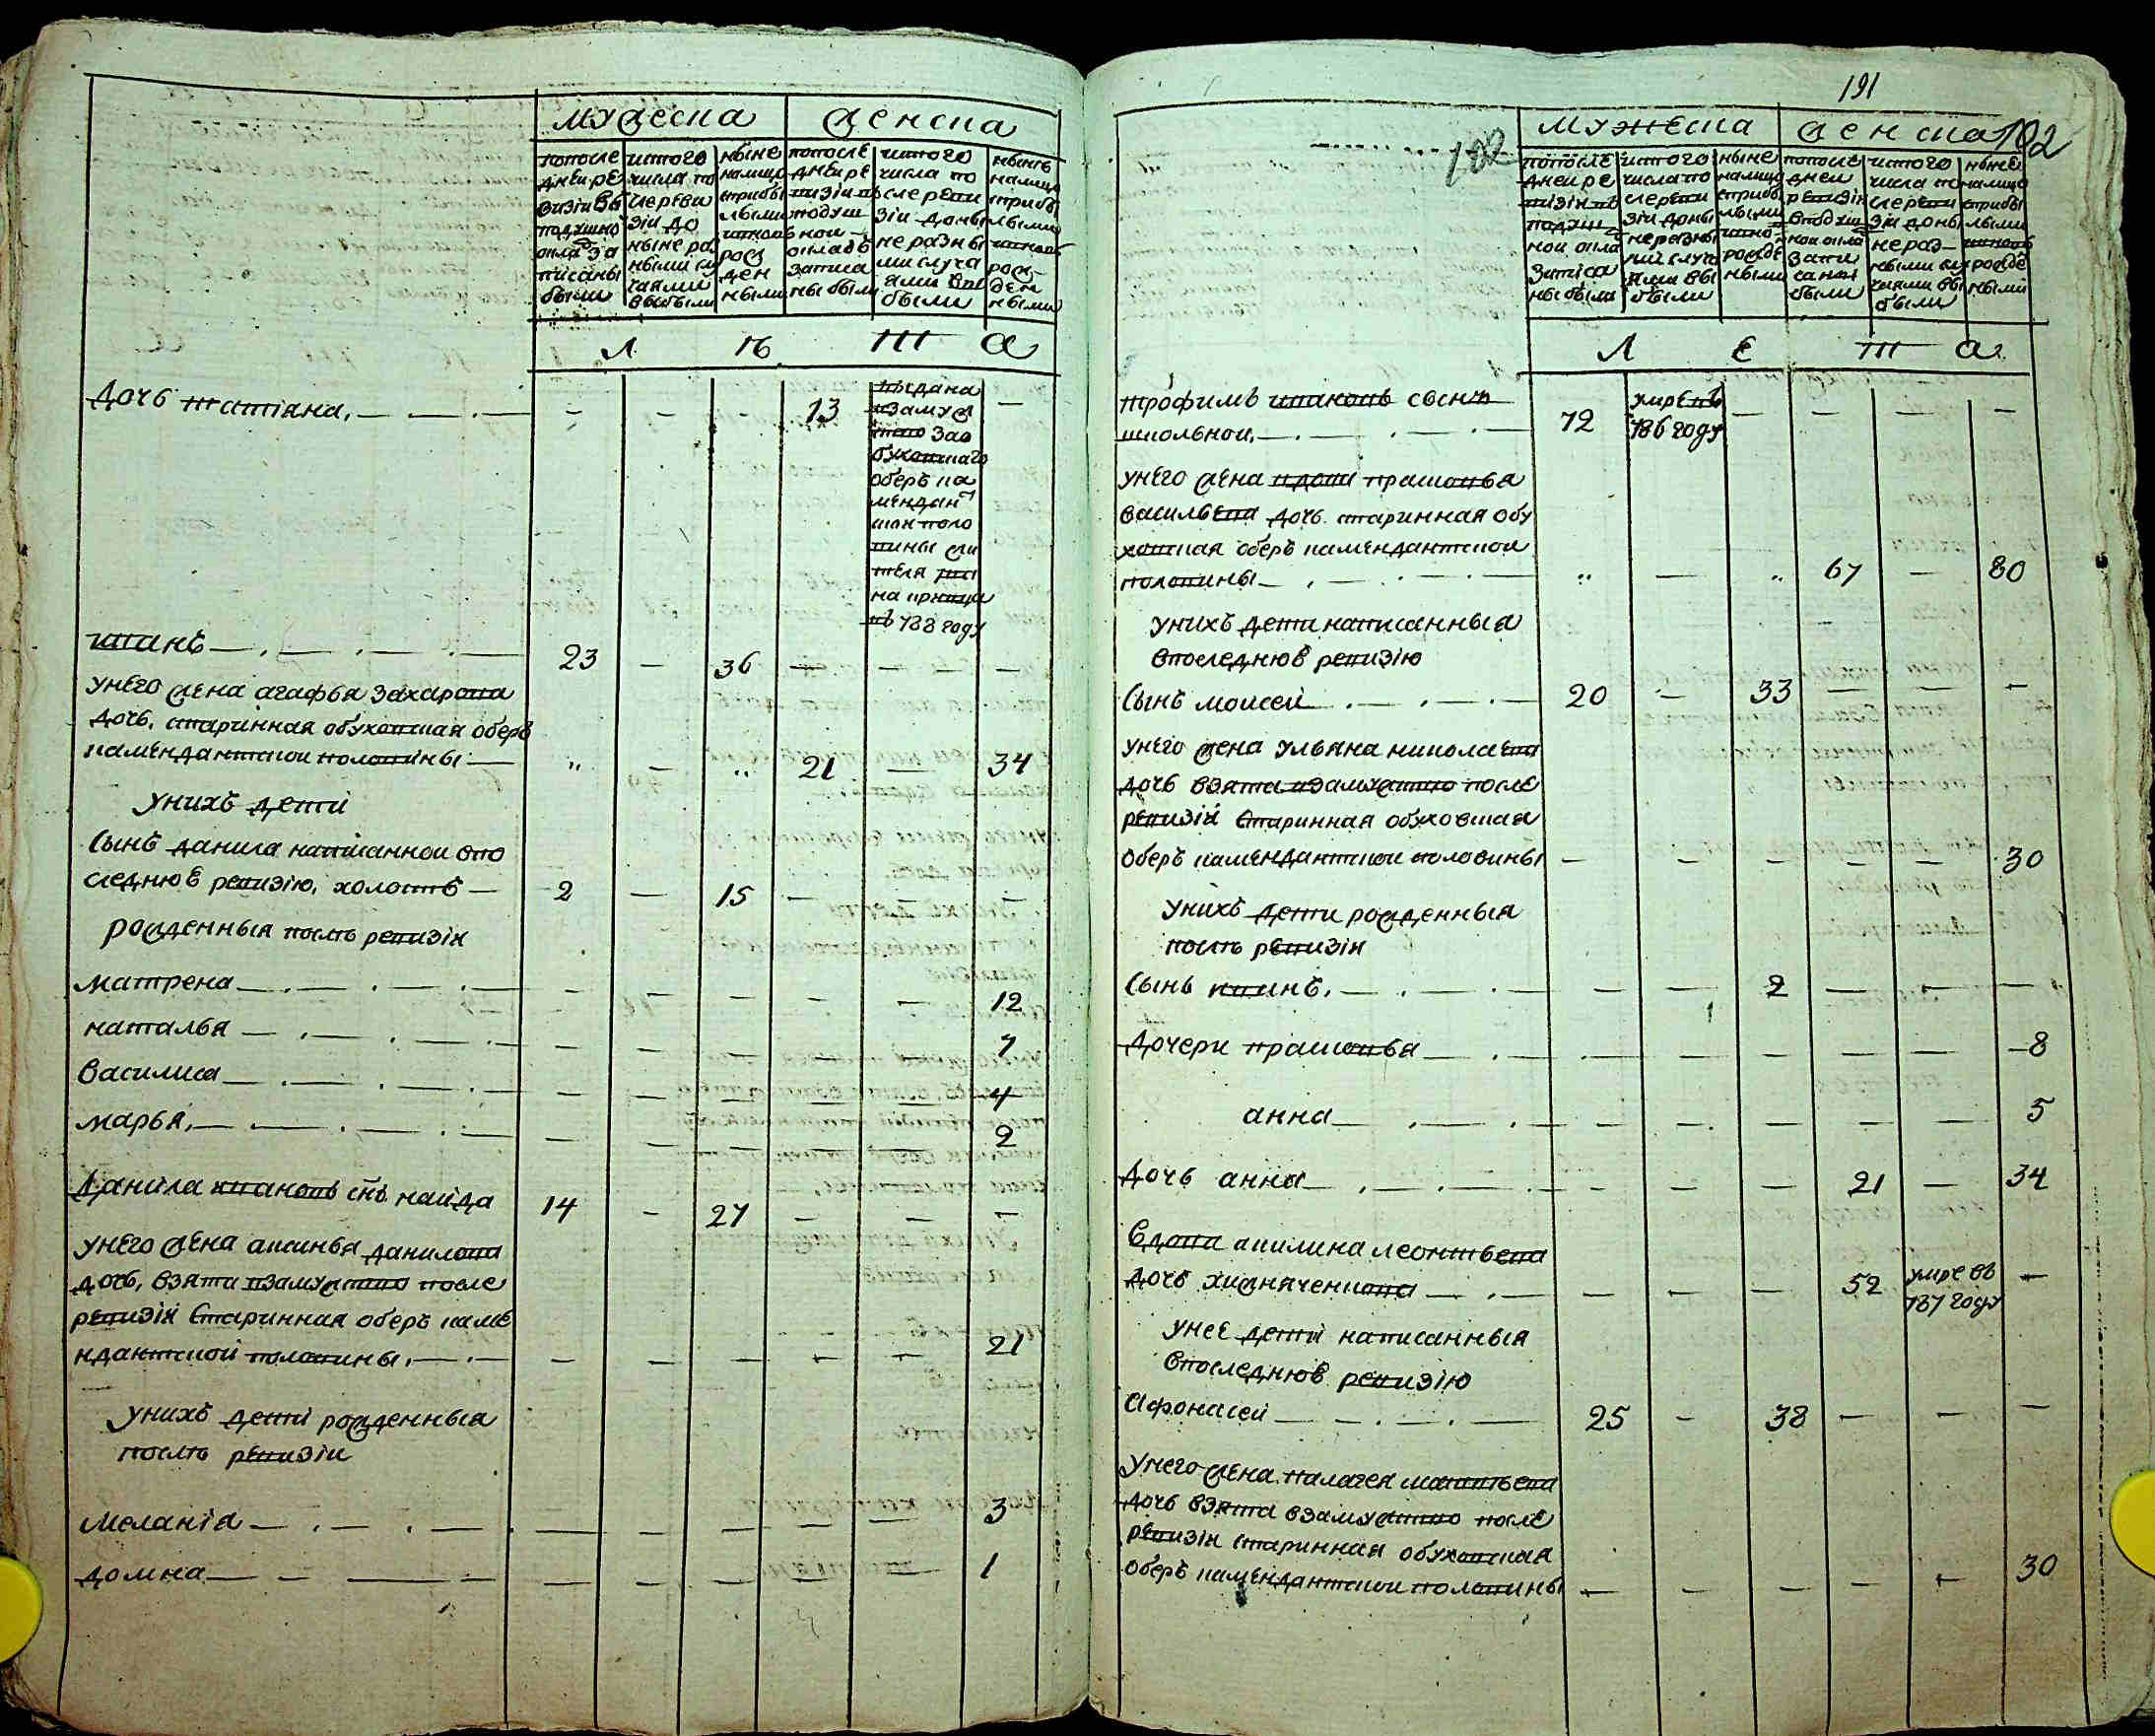 мужеска
женска
попосле
дней ре
визiи въ
подушно
окла за
писаны
были
исто́го
числа по
сле реви
зiи до
ныне ра
зными слу
чаями
выбыли
ныне
налицо
с прибы
лыми
и внов
рож
ден
ными
попосле
дней ре
визiи в
подуш
ной
окладъ
записа
ны были
исто́го
числа по
сле реви
зiи доны
не разны
ми случа
ями вы
были
ныне
налицо
с прибы
лыми
и внов
рож
ден
ными
Л Ѣ т а
Дочь татiана.
13
выдана
взамуж
тво з ао
буховшаго
оберъ ка
мендан
ской поло
вины жи
теля
188 году
23
36
унего жена агафья захарова
дочь. старинная обуховская оберъ
камендантской половины
21
34
унихъ дети
Сынъ данила написанной впо
следнюѣ ревизiю, холостъ
2
15
рожденныя послѣ ревизiи
матрена
12
наталья
7
василиса
4
марья,
2
Данила ивановъ снъ найда
14
27
унего жена аксинья данилова
дочь, взята взамужство после
ревизiи Старинная оберъ каме
ндантской половины.
21
унихъ дети рожденныя
послѣ ревизiи
меланiя
3
домна
1
191
102
мужеска
женска
попосле
дней ре
визiи въ
подуш
ной окла
записа
ны были
исто́го
числа по
сле реви
зiи доны
не разны
ми случа
ями вы
были
ныне
налицо
с прибы
лыми
и вно
рожде
ными
попосле
дней
ревизiи
в подуш
ной окла
запи
саны
были
исто́го
числа по
сле реви
зiи доны
не раз
ными слу
чаями вы
были
ныне
налицо
с прибы
лыми
и внов
рожде
ными
Л Е т а
трофимъ ивановъ сынъ
школьной.
72
умре въ
786 году
унего жена вдова прасковья
васильева дочь. старинная обу
ховская оберъ камендантской
половины
67
80
унихъ дети написанныя
впоследнюѣ ревизiю
Сынъ моисей
20
33
унего жена ульяна николаева
дочь взята взамужство после
ревизiи Старинная обуховская
оберъ камендантской половины
30
унихъ дети рожденныя
послѣ ревизiи
Сынъ иванъ.
2
Дочери прасковья
8
анна
5
Дочь анна
21
34
Вдова акилина леонтьева
дочь
52
умре въ
787 году
унее дети написанныя
впоследнюѣ ревизiю
Афонасей
25
38
унего жена палагея матвѣева
дочь взята взамужство после
ревизiи старинная обуховская
оберъ камендантской половины
30